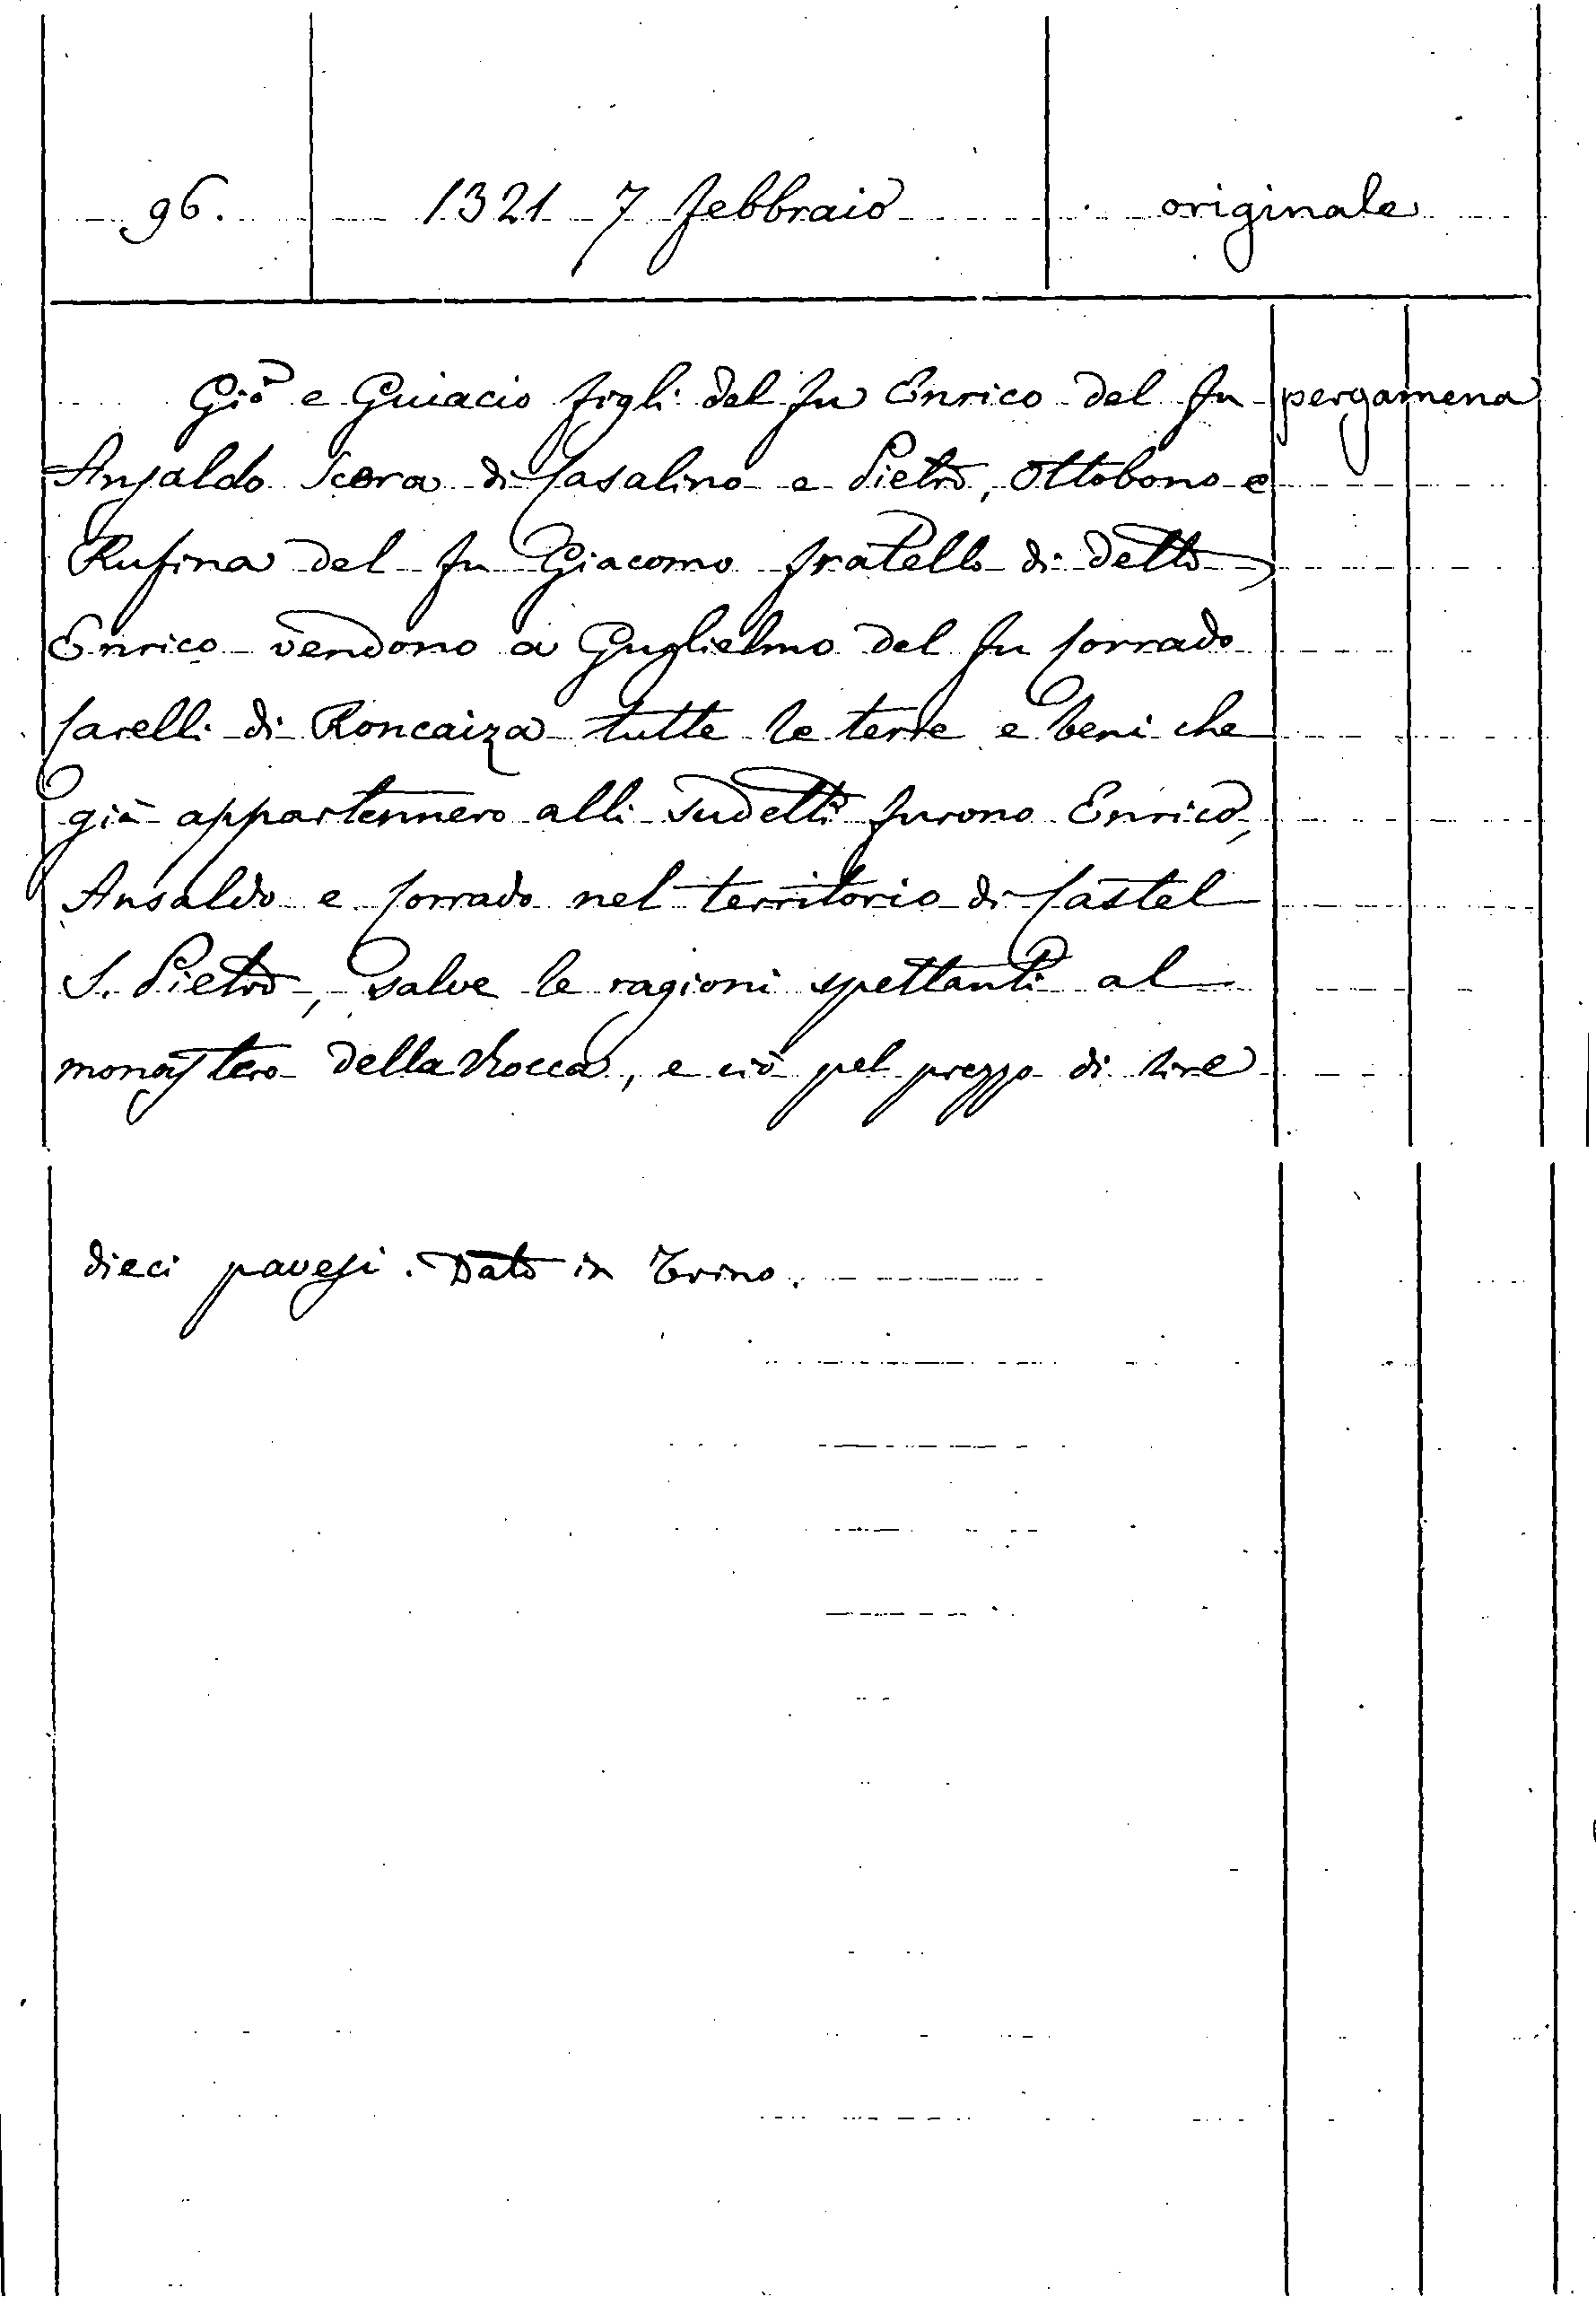 96. 1321 7 febbraio originale
Giõ e Guiacio figli del fu Enrico del fu pergamena
Ansaldo Scora di Casalino e Pietro, Ottobono e
Rufina del fu Giacomo fratello di detto
Enrico vendono a Guglielmo del fu Corrado
Carelli di Roncaiza tutte le terre e beni che
già appartennero alli sudetti furono Enrico,
Ansaldo e Corrado nel territorio di Castel
S. Pietro, salve le ragioni spettanti al
monastero della Rocca, e ciò pel prezzo di lire
dieci pavesi. Dato in Trino.